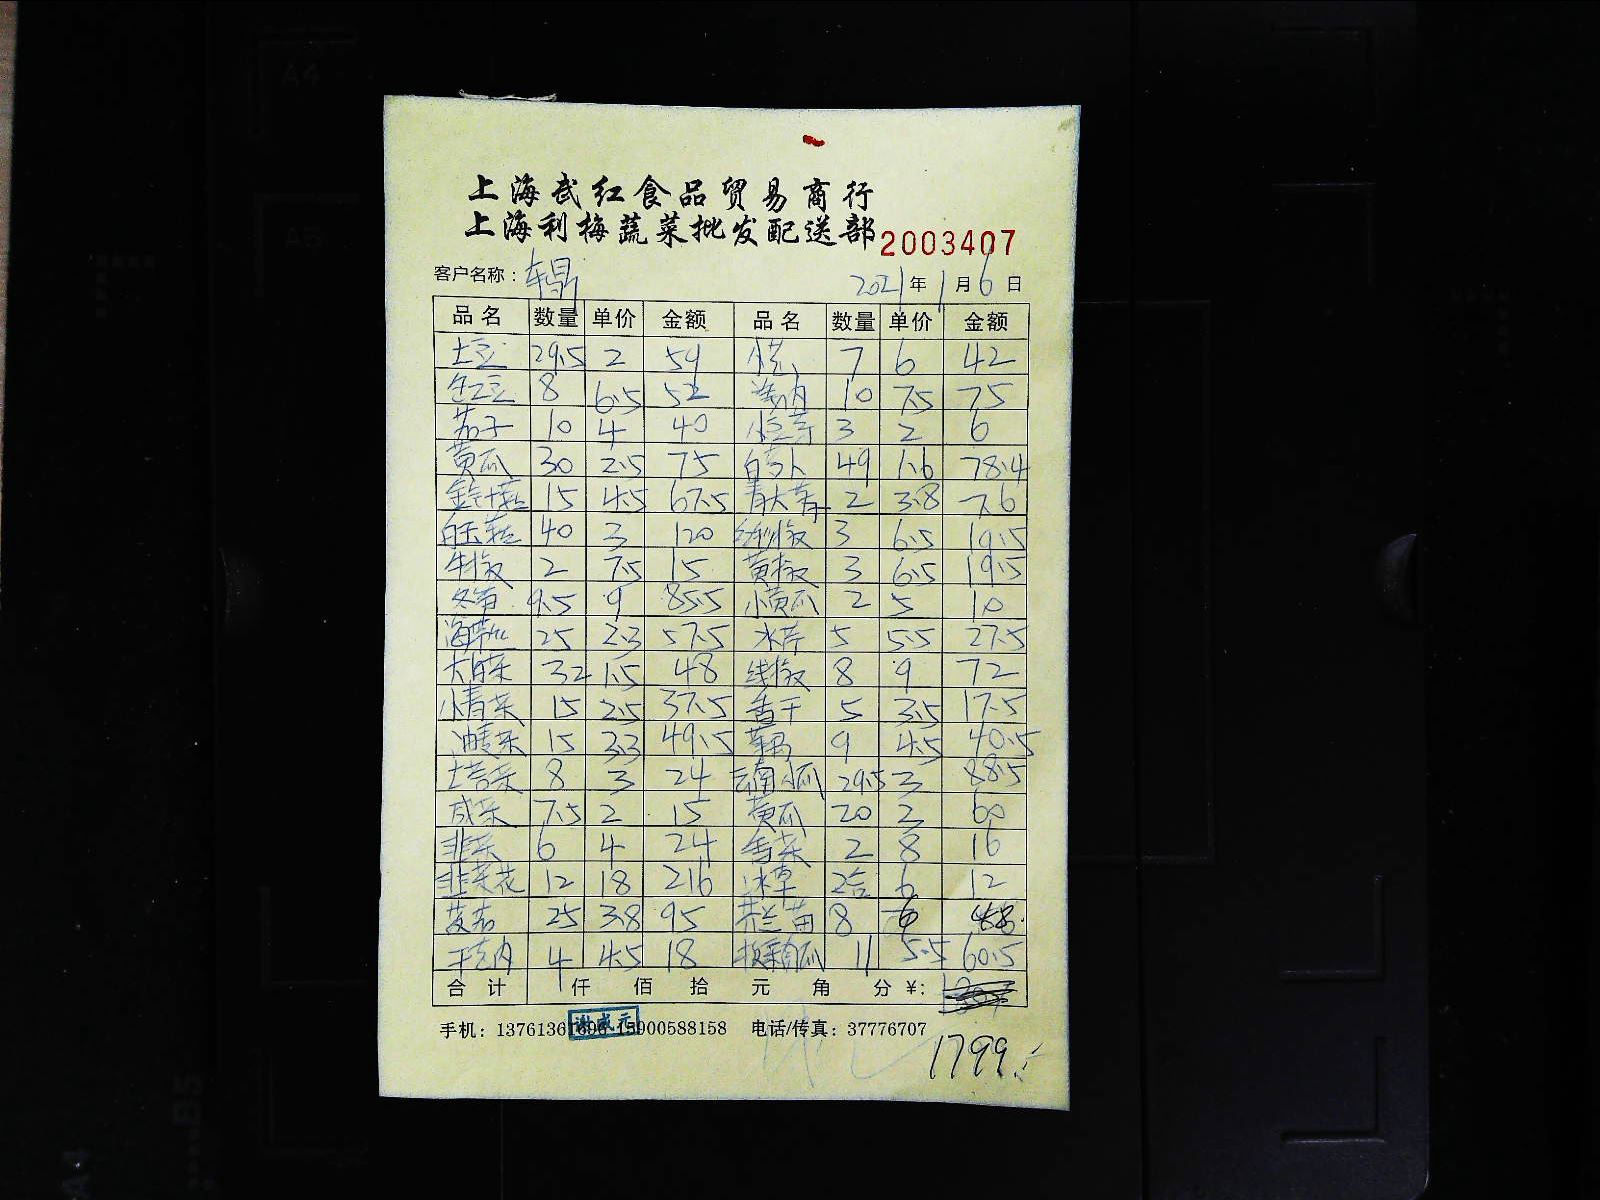 上海武红食品贸易商行
上海利梅蔬菜批发配送部 2003407
客户名称： 2021年1月6日
品名 数量 单价 金额 品名 数量 单价 金额
土豆 29.5 2 59 7 6 42
8 6.5 52 10 7.5 75
茄子 10 4 40 小豆芽 3 2 6
黄瓜 30 2.5 75 白萝卜 49 1.6 78.4
15 4.5 67.5 青大蒜 2 3.8 7.6
40 3 120 红椒 3 6.5 19.5
牛椒 2 7.5 15 黄椒 3 6.5 19.5
冬笋 9.5 9 85.5 小黄瓜 2 5 10
海带丝 25 2.3 57.5 水芹 5 5.5 27.5
大白菜 32 1.5 48 线椒 8 9 72
小青菜 15 2.5 37.5 香干 5 3.5 17.5
油麦菜 15 3.3 49.5 9 4.5 40.5
8 3 24 云南小瓜 29.5 3 88.5
咸菜 7.5 2 15 黄瓜 20 2 60
韭菜 6 4 24 香菜 2 8 16
韭菜花 12 18 216 冰草 2盒 6 12
25 3.8 95 8 6 48
4 4.5 18 11 5.5 60.5
合计 仟 佰 拾 元 角 分 ¥:
手机：13761361696 15900588158 电话/传真：37776707
谢成元
1799.